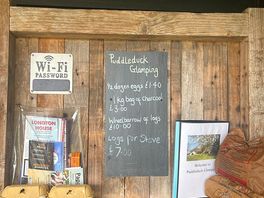 Wi-Fi
PASSWORD
Puddleduck
Glamping
½ dozen eggs £1.40
1 kg bag of charcoal
£3.00
Wheelbarrow of logs
£10.00
Logs for Stove
£7.00
LONGTON
HOUSE
Welcome to
Puddleduck Glamping